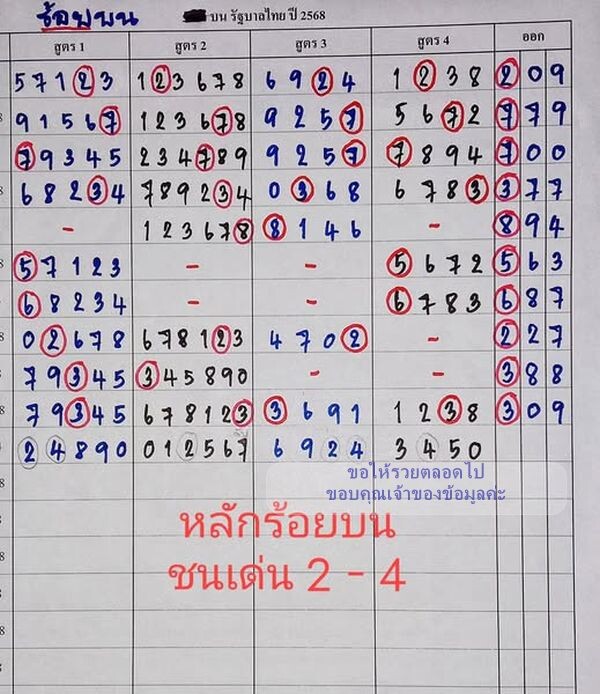 ร้อยบน บน รัฐบาลไทย ปี 2568
สูตร 1 สูตร 2 สูตร 3 สูตร 4 ออก
57123 123678 6924 1238 209
91567 123678 9257 5672 779
79345 234789 9257 7894 700
68234 789234 0368 6783 377
- 123678 8146 - 894
57123 - - 5672 563
68234 - - 6783 687
02678 678123 4702 - 227
79345 345890 - - 388
79345 678123 3691 1238 309
24890 012567 6924 3450
ขอให้รวยตลอดไป
ขอบคุณเจ้าของข้อมูลค่ะ
หลักร้อยบน
ชนเด่น 2 - 4